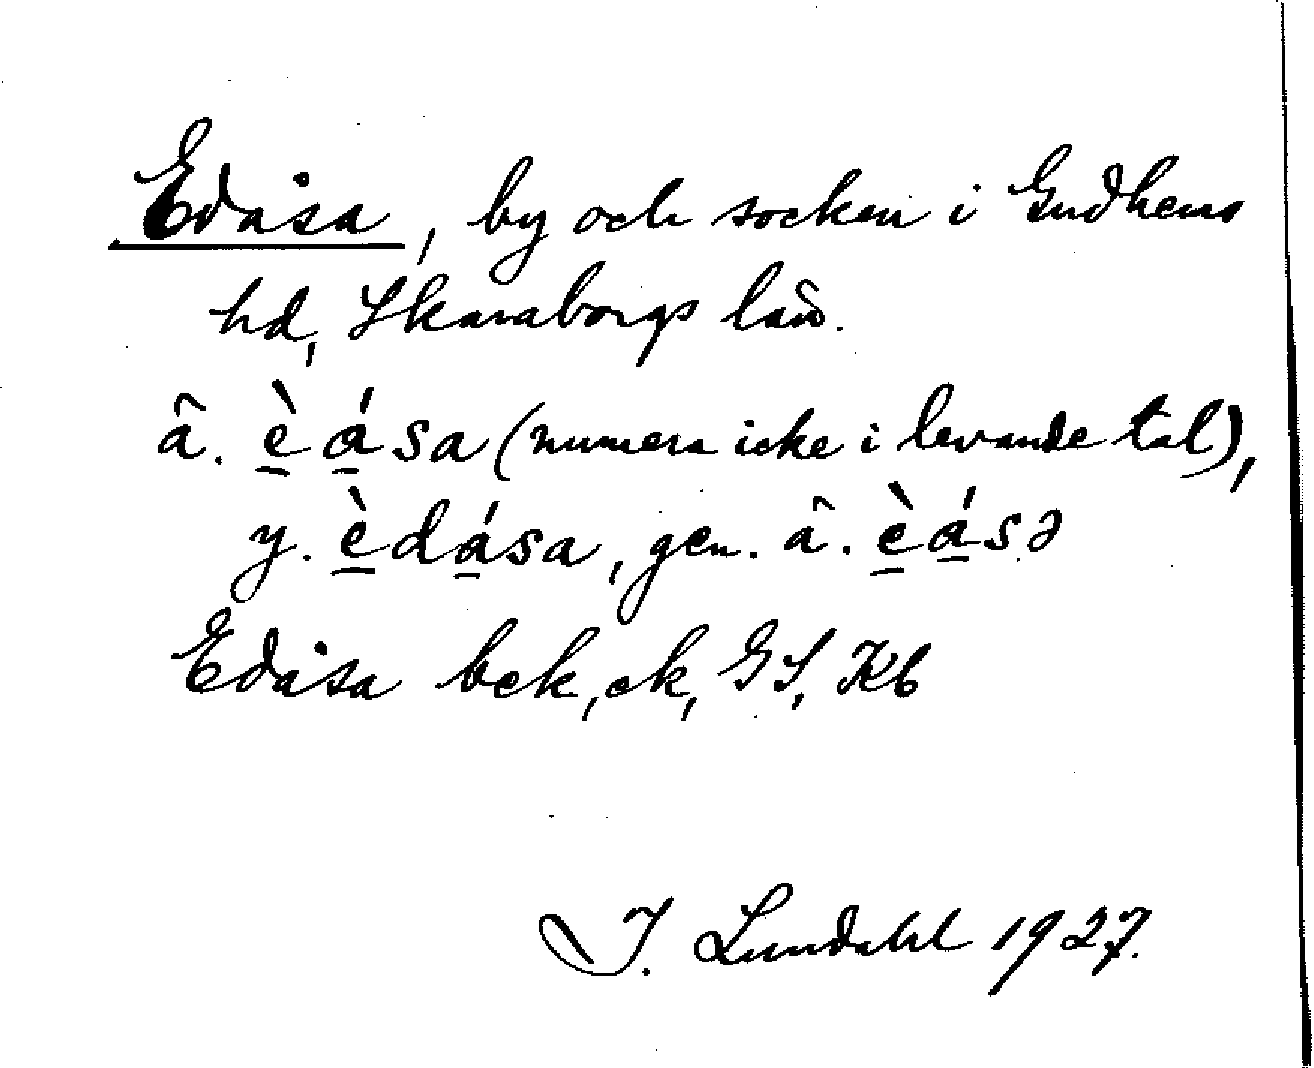 Edåsa, by och socken i Gudhems
hd, Skaraborgs län.
ä. è̱á̱sa (numera icke i levande tal),
y. è̱dá̱sa, gen. ä. è̱á̱sə
Edåsa bek, ek, GS, Kb
I. Lundahl 1927.